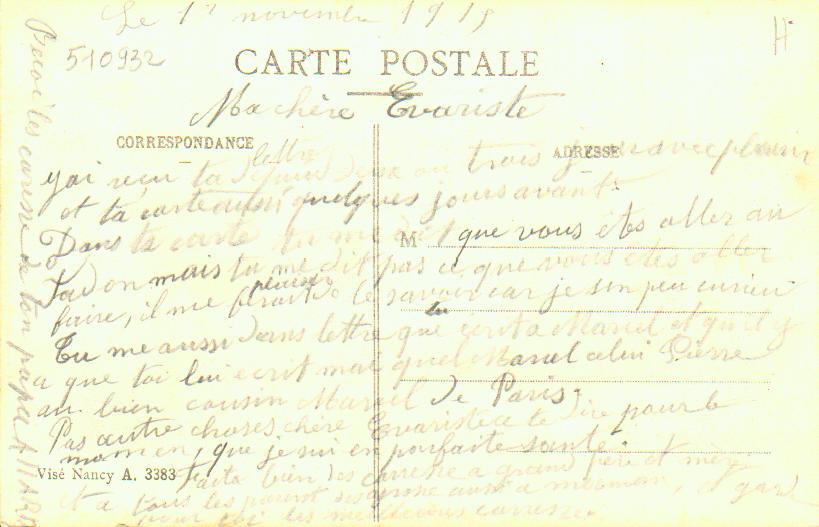 Le 1r novembre 1915
H
510932
CARTE POSTALE
Ma chère Evariste
CORRESPONDANCE
ADRESSE
lettre
Jai reçu ta deux ou trois jours avec plaisir
et ta carte aussi quelques jours avant.
Dans ta carte tu me dit que vous êtes aller au
M
mais tu me dit pas ce que vous êtes aller
plaisir
faire, il me ferait de le savoir car je sui un peu curieu
tu
Tu me aussi dans lettre que écrit a Marcel et quil y
a que toi lui ecrit mai quel Marcel celui Pierre
au bien cousin Marcel de Paris.
Pas autre choses chère Evariste a te dire pour le
momen, que je sui en parfaite santé.
Visé Nancy A. 3383
Faite bien des caresse a grand père et
et a tous les parent aussi a meoman, et gard
pour toi les meilleures caresse.
Recoi les caresse de ton papa